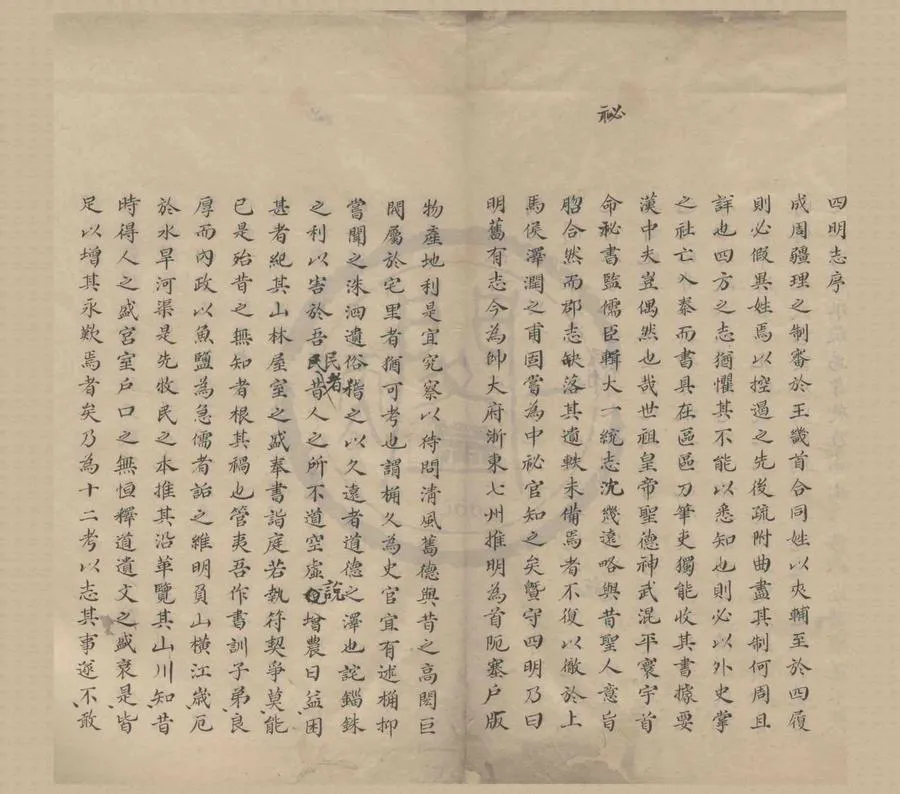 祕
四明志序
成周疆理之制審於王畿首合同姓以夾輔至於四履
則必假異姓焉以控遏之先後疏附曲盡其制何周且
詳也四方之志猶懼其不能以悉知也則必以外史掌
之社亡入秦而書具在區區刀筆吏獨能收其書據要
漢中夫豈偶然也哉世祖皇帝聖德神武混平寰宇首
命祕書監儒臣輯大一統志沈幾遠略與昔聖人意旨
脗合然而郡志缺落其遺軼未備焉者不復以徹於上
馬侯澤潤之甫固嘗為中祕官知之矣暨守四明乃曰
明舊有志今為帥大府浙東七州推明為首阨塞戶版
物產地利是宜究察以待問清風舊德與昔之高閎巨
閥屬於宅里者猶可考也謂桷久為史官宜有述桷抑
嘗聞之洙泗遺俗稽之以久遠者道德之澤也詫錙銖
之利以害於吾民民者昔人之所不道空虛說增農日益困
甚者紀其山林屋室之盛奉書詣庭若執符契爭莫能
已是殆昔之無知者根其禍也管夷吾作書訓子弟良
厚而內政以魚鹽為急儒者詬之維明負山橫江歲厄
於水旱河渠是先牧民之本推其沿革覽其山川知昔
時得人之盛宮室戶口之無恒釋道遺文之盛衰是皆
足以增其永歎焉者矣乃為十二考以志其事遂不敢